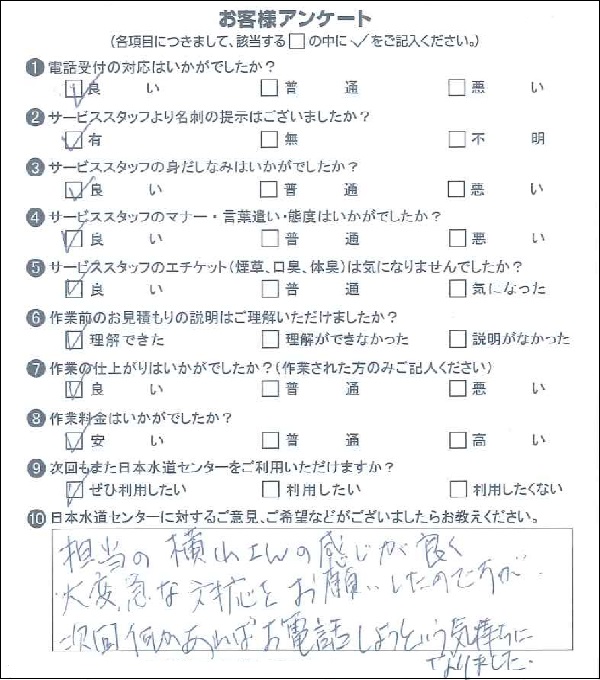 お客様アンケート
(各項目につきまして、該当する□の中に✓をご記入ください。)
❶電話受付の対応はいかがでしたか?
☑良い □普通 □悪い
❷サービススタッフより名刺の提示はございましたか?
☑有 □無 □不明
❸サービススタッフの身だしなみはいかがでしたか?
☑良い □普通 □悪い
❹サービススタッフのマナー・言葉遣い・態度はいかがでしたか?
☑良い □普通 □悪い
❺サービススタッフのエチケット(煙草、口臭、体臭)は気になりませんでしたか?
☑良い □普通 □気になった
❻作業前のお見積もりの説明はご理解いただけましたか?
☑理解できた □理解ができなかった □説明がなかった
❼作業の仕上がりはいかがでしたか?(作業された方のみご記入ください)
☑良い □普通 □悪い
❽作業料金はいかがでしたか?
☑安い □普通 □高い
❾次回もまた日本水道センターをご利用いただけますか?
☑ぜひ利用したい □利用したい □利用したくない
❿日本水道センターに対するご意見、ご希望などがございましたらお教えください。
担当の横山さんの感じが良く
大変急な対応をお願いしたのですが、
次回何かあればお電話しようという気持ちに
なりました。